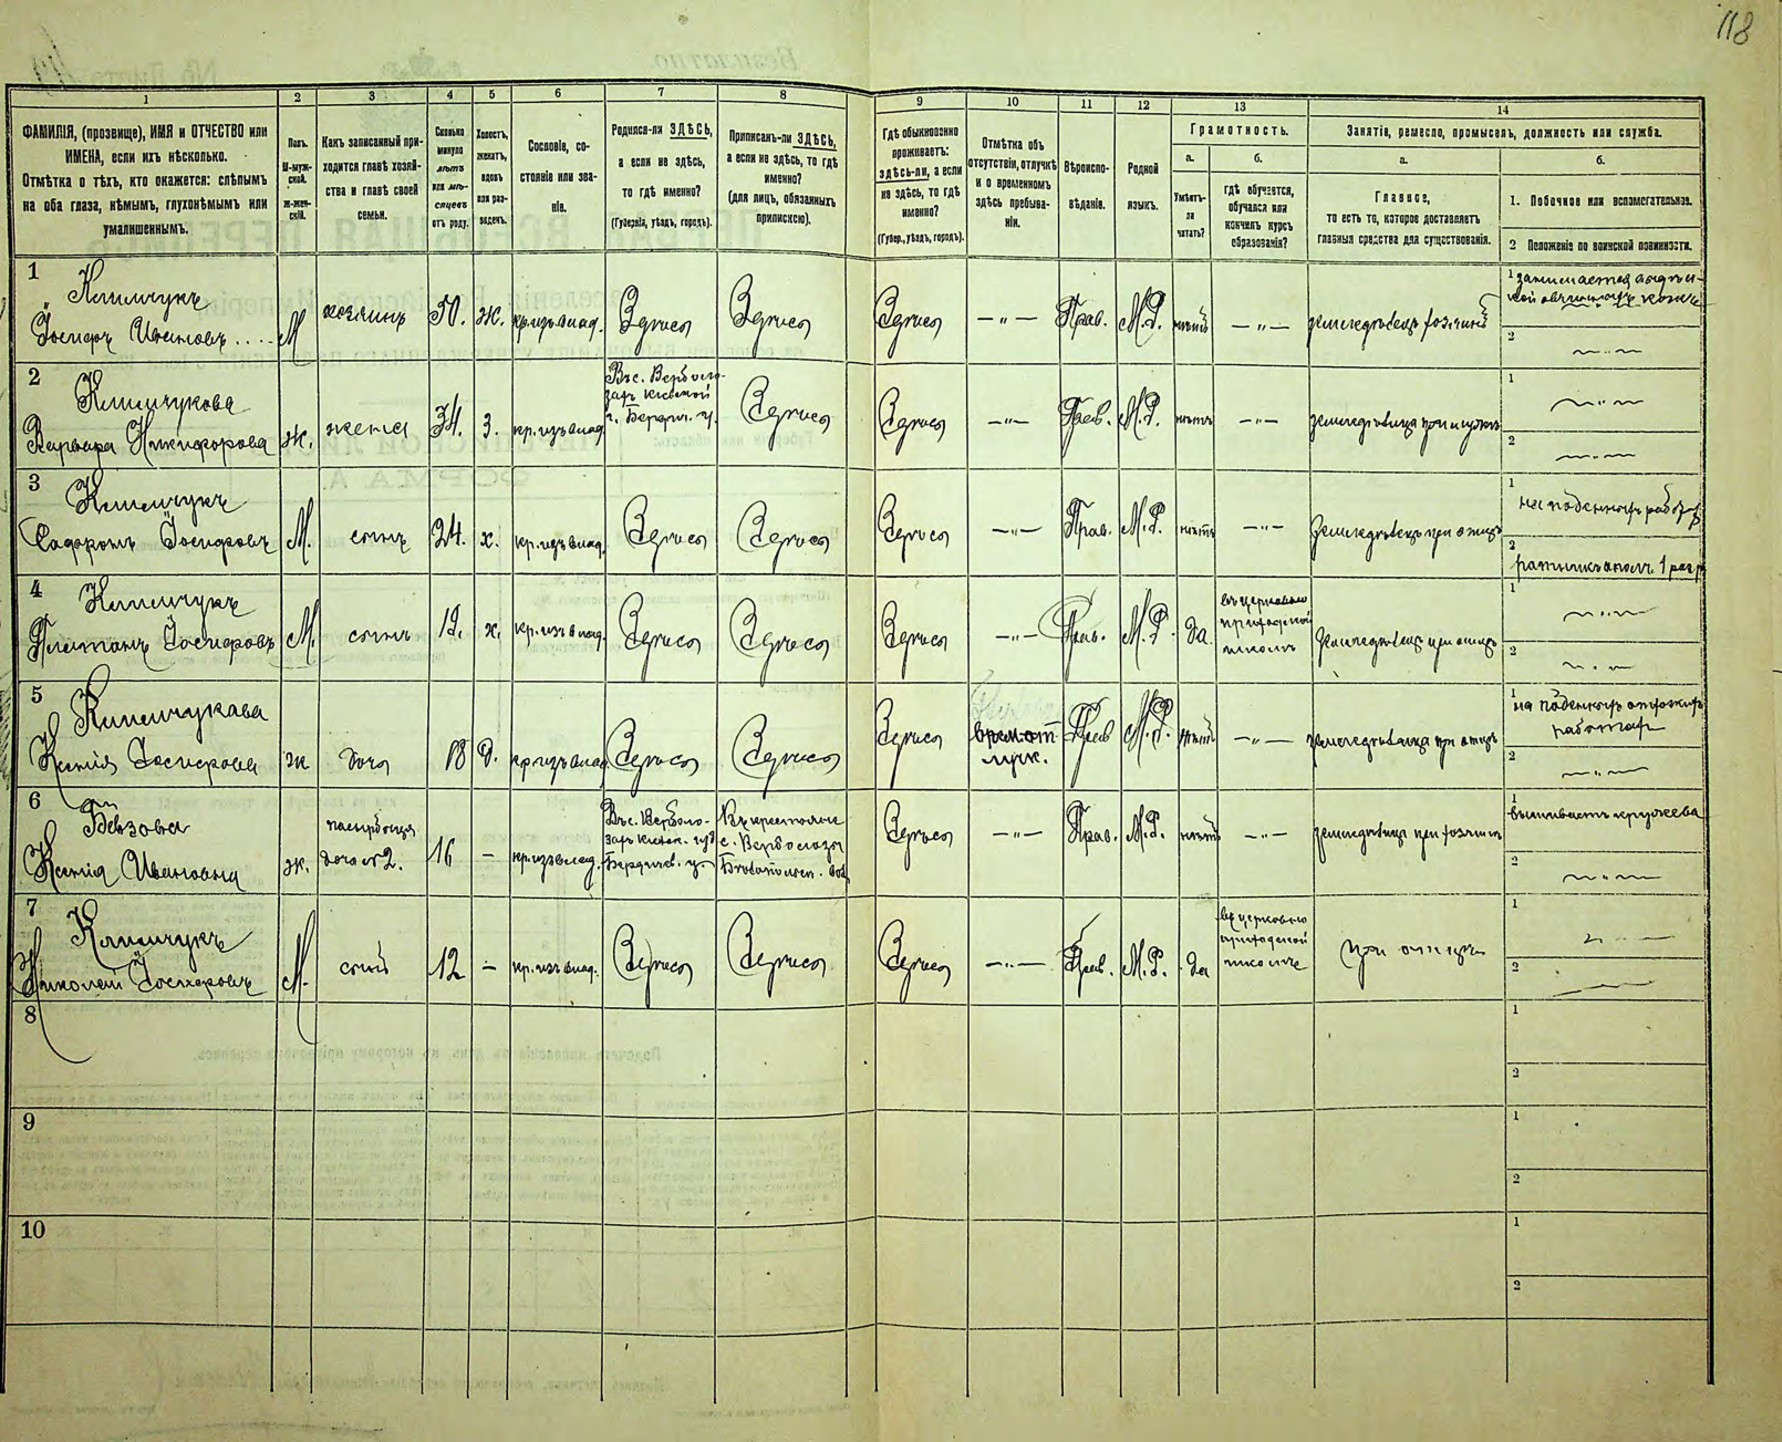 118
1 2 3 4 5 6 7 8 9 10 11 12 13 14
ФАМИЛІЯ, (прозвище), ИМЯ и ОТЧЕСТВО или
ИМЕНА, если ихъ нѣсколько.
Отмѣтка о тѣхъ, кто окажется: слѣпымъ
на оба глаза, нѣмымъ, глухонѣмымъ или
умалишеннымъ.
Полъ.
М-муж-
ской.
Ж-жен-
скій.
Какъ записанный при-
ходится главѣ хозяй-
ства и главѣ своей
семьи.
Сколько
минуло
лѣтъ
или мѣ-
сяцевъ
отъ роду.
Холостъ,
женатъ,
вдовъ
или раз-
веденъ.
Сословіе, со-
стояніе или зва-
ніе.
Родился-ли ЗДѢСЬ,
а если не здѣсь,
то гдѣ именно?
(Губернія, уѣздъ, городъ).
Приписанъ-ли ЗДѢСЬ,
а если не здѣсь, то гдѣ
именно?
(для лицъ, обязанныхъ
припискою).
Гдѣ обыкновенно
проживаетъ:
здѣсь-ли, а если
не здѣсь, то гдѣ
именно?
(Губер., уѣздъ, городъ).
Отмѣтка объ
отсутствіи, отлучкѣ
и о временномъ
здѣсь пребыва-
ніи.
Вѣроиспо-
вѣданіе.
Родной
языкъ.
Грамотность.
а.
Умѣетъ-
ли
читать?
б.
гдѣ обучается,
обучался или
кончилъ курсъ
образованія?
Занятіе, ремесло, промыселъ, должность или служба.
а.
Главное,
то есть то, которое доставляетъ
главныя средства для существованія.
б.
1. Побочное или вспомогательное.
2 Положеніе по воинской повинности.
1 Климчукъ
Іосифъ Ивановъ .... М хозяинъ 50. ж. кр. изъ влад. Здѣсь Здѣсь Здѣсь — „ — Прав. М.Р. нѣтъ — „ — земледѣлецъ хозяинъ
1 занимается
2
2 Климчукова
Варвара Никифорова ж. жена 34. з. кр. изъ влад.
Въ с. Верболо-
захъ Кіевской
г. Бердич. у.
Здѣсь Здѣсь — „ — Прав. М.Р. нѣтъ — „ — земледѣлица при мужѣ
1
2
3 Климчукъ
Іосифовъ М. сынъ 24. х. кр. изъ влад. Здѣсь Здѣсь Здѣсь — „ — Прав. М.Р. нѣтъ — „ — земледѣлецъ при отцѣ
1 на поденныхъ работахъ
2 ратникъ ополч. 1 разр.
4 Климчукъ
Платонъ Іосифовъ М. сынъ 19. х. кр. изъ влад. Здѣсь Здѣсь Здѣсь — „ — Прав. М.Р. да
въ церковно
приходской
школѣ
земледѣлецъ при отцѣ
1
2
5 Климчукова
Ксенія Іосифова ж дочь 18 д. кр. изъ влад. Здѣсь Здѣсь Здѣсь
Прав М.Р. нѣтъ — „ — земледѣлица при отцѣ
1 на поденныхъ отхожихъ
работахъ
2
6 Бевзова
Ксенія Ивановна ж.
пасербица
дочь № 2. 16 — кр. изъ влад.
Въ с. Верболо-
захъ Кіевск. губ
Бердичев. у.
с. Верболозы
Здѣсь — „ — Прав. М.Р. нѣтъ — „ — земледѣлица при хозяинѣ
1 вышиваетъ кружева
2
7 Климчукъ
Николай Іосифовъ М. сынъ 12 — кр. изъ влад. Здѣсь Здѣсь Здѣсь — „ — Прав. М.Р. да
въ церковно
приходской
школѣ
при отцѣ
1
2
8
1
2
9
1
2
10
1
2